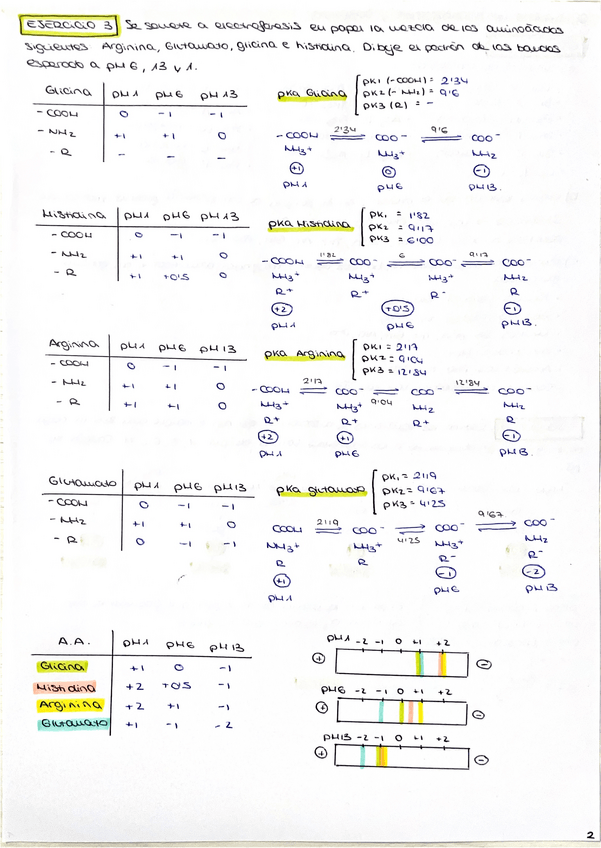 EJERCICIO 3 Se somete a electroforesis en papel la mezcla de los aminoácidos
siguientes Arginina, Glutamato, glicina e histidina. Dibuje el patrón de las bandas
esperado a pH 6, 13 y 1.
Glicina pH1 pH6 pH13
-COOH 0 -1 -1
-NH2 +1 +1 0
-R - - -
pKa Glicina
pK1 (-COOH) = 2'34
pK2 (-NH2) = 9'6
pK3 (R) = -
-COOH 2'34 COO- 9'6 COO-
NH3+ NH3+ NH2
+1 0 -1
pH1 pH6 pH13.
Histidina pH1 pH6 pH13
-COOH 0 -1 -1
-NH2 +1 +1 0
-R +1 +0'5 0
pKa Histidina
pK1 = 1'82
pK2 = 9'17
pK3 = 6'00
-COOH 1'82 COO- 6 COO- 9'17 COO-
NH3+ NH3+ NH3+ NH2
R+ R+ R- R
+2 +0'5 -1
pH1 pH6 pH13.
Arginina pH1 pH6 pH13
-COOH 0 -1 -1
-NH2 +1 +1 0
-R +1 +1 0
pKa Arginina
pK1 = 2'17
pK2 = 9'04
pK3 = 12'84
-COOH 2'17 COO- 9'04 COO- 12'84 COO-
NH3+ NH3+ NH2 NH2
R+ R+ R+ R
+2 +1 -1
pH1 pH6 pH13.
Glutamato pH1 pH6 pH13
-COOH 0 -1 -1
-NH2 +1 +1 0
-R 0 -1 -1
pKa glutamato
pK1 = 2'19
pK2 = 9'67
pK3 = 4'25
COOH 2'19 COO- 4'25 COO- 9'67 COO-
NH3+ NH3+ NH3+ NH2
R R R- R-
+1 -1 -2
pH1 pH6 pH13
A.A. pH1 pH6 pH13
Glicina +1 0 -1
Histidina +2 +0'5 -1
Arginina +2 +1 -1
Glutamato +1 -1 -2
pH1 -2 -1 0 +1 +2
+ -
pH6 -2 -1 0 +1 +2
+ -
pH13 -2 -1 0 +1 +2
+ -
2